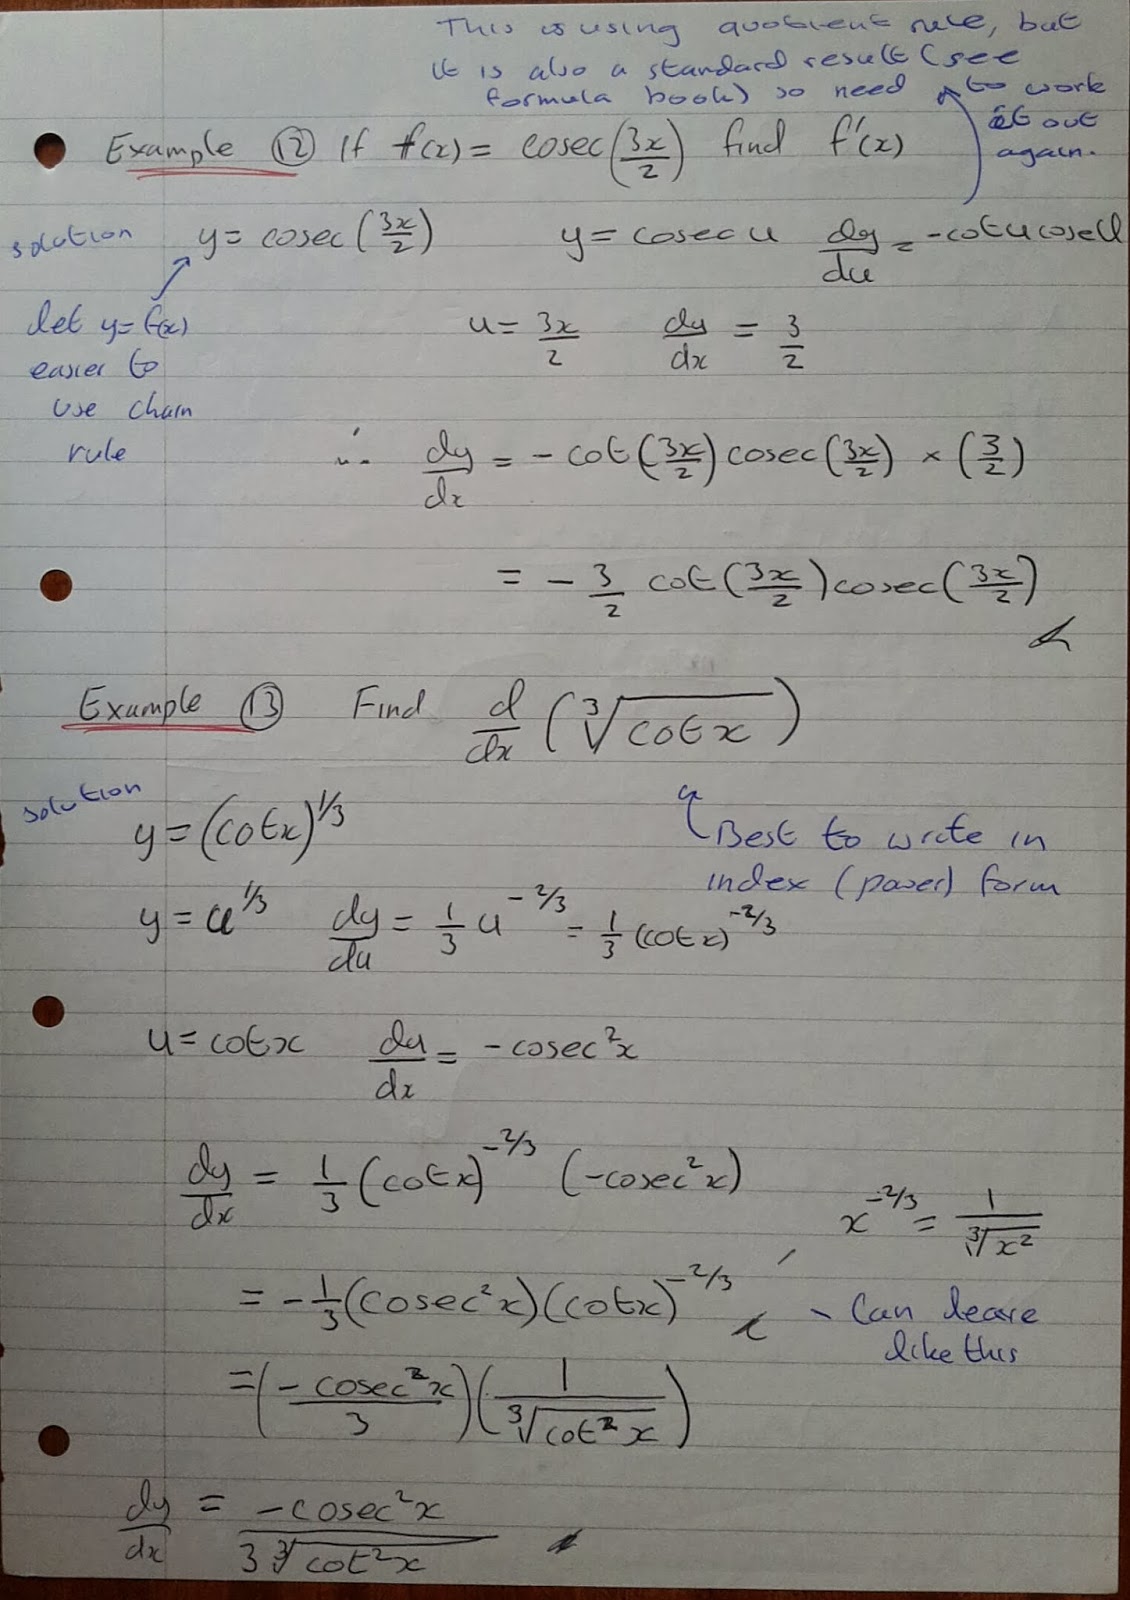 This is using quotient rule, but
it is also a standard result (see
formula book) so need to work
it out
again.
Example 12 If f(x) = cosec(3x/2) find f'(x)
solution y = cosec(3x/2) y = cosec u dy/du = -cot u cosec u
let y = f(x)
easier to
use chain
rule
u = 3x/2 du/dx = 3/2
∴ dy/dx = -cot(3x/2)cosec(3x/2) × (3/2)
= -3/2 cot(3x/2)cosec(3x/2)
Example 13 Find d/dx (∛cotx)
solution
y = (cotx)^1/3
Best to write in
index (power) form
y = u^1/3 dy/du = 1/3 u^-2/3 = 1/3 (cotx)^-2/3
u = cotx du/dx = -cosec²x
dy/dx = 1/3 (cotx)^-2/3 (-cosec²x)
x^-2/3 = 1/∛x²
= -1/3(cosec²x)(cotx)^-2/3 - Can leave
like this
= (-cosec²x/3)(1/∛cot²x)
dy/dx = -cosec²x/3∛cot²x